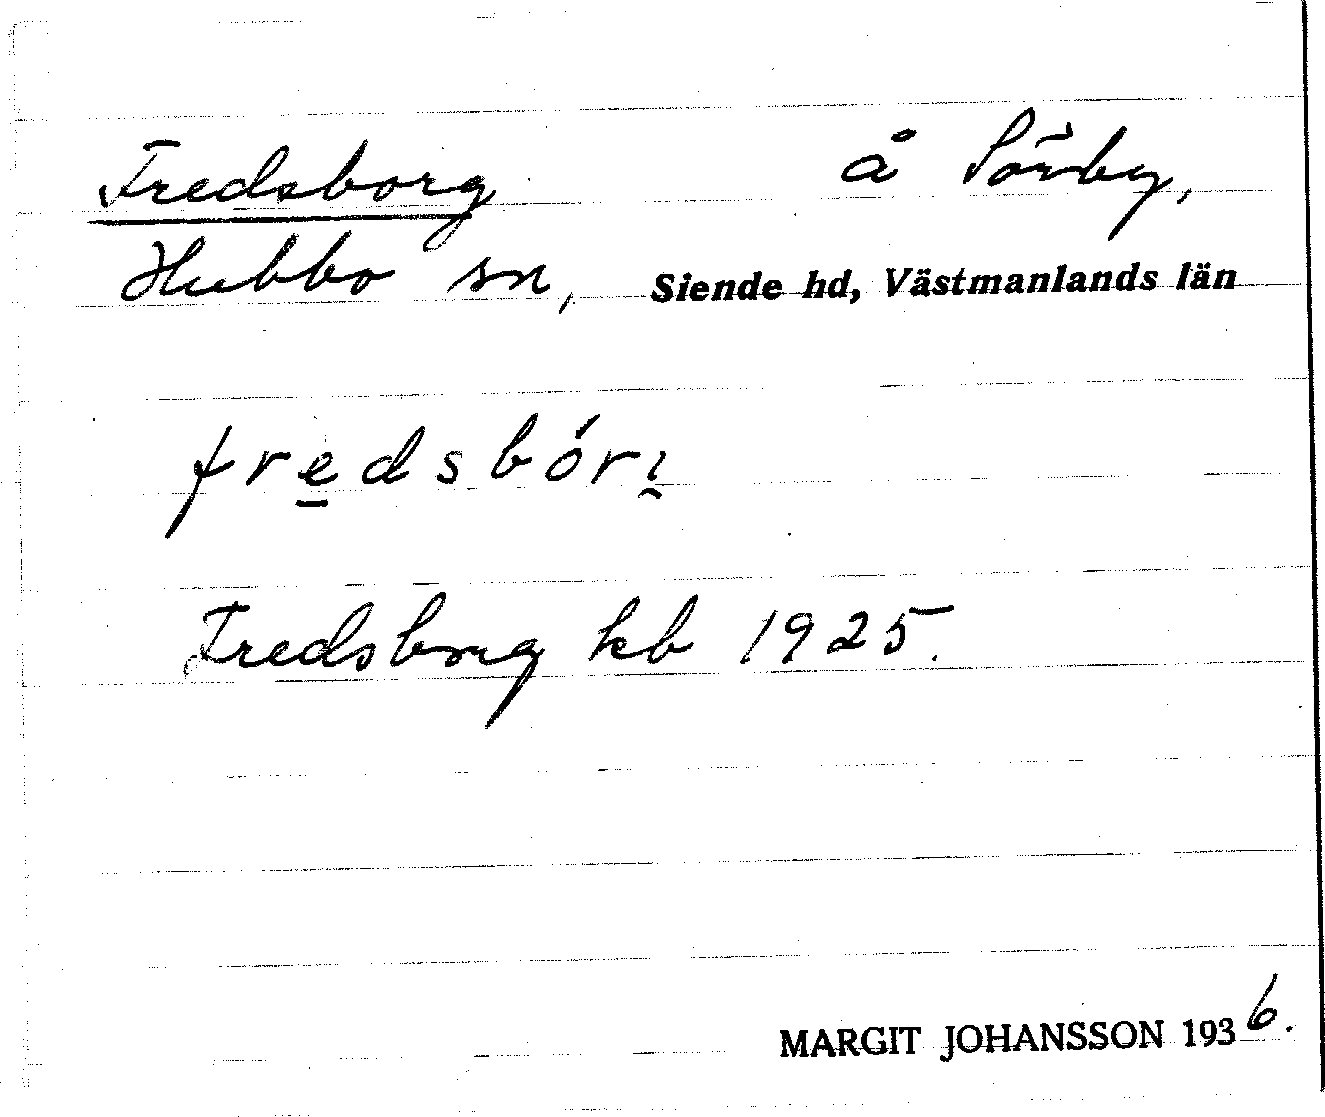 Fredsborg å Sörby,
Hubbo sn, Siende hd, Västmanlands län
fredsbórı̯
Fredsborg kb 1925.
MARGIT JOHANSSON 1936.